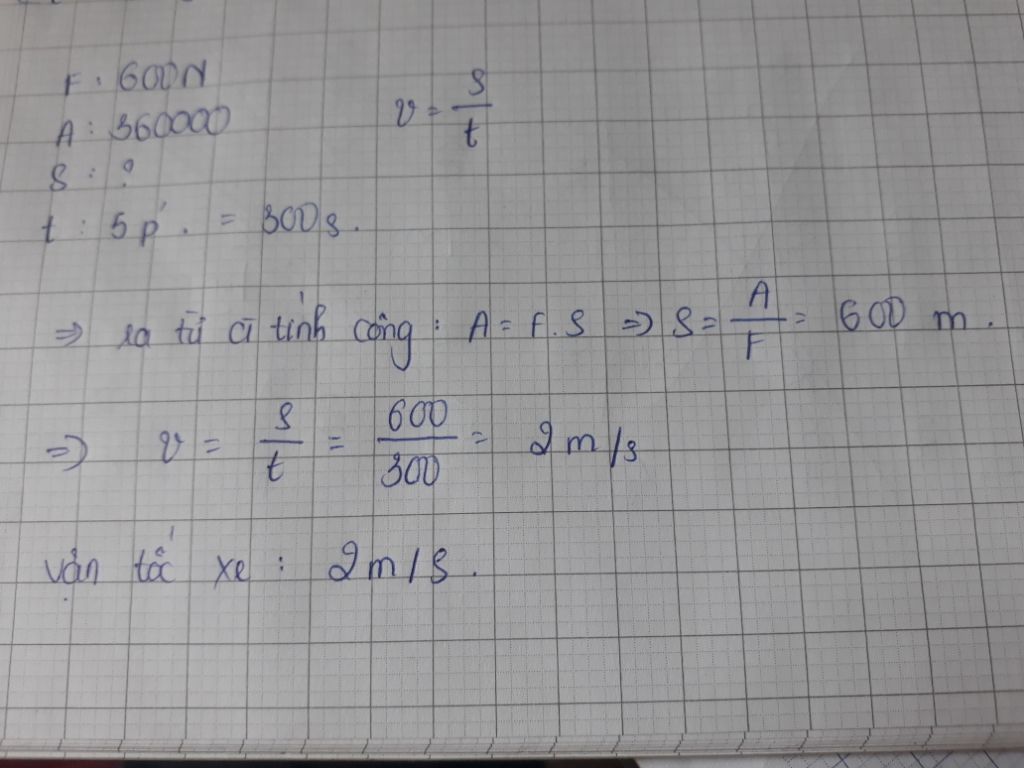 F : 600N
A : 360000
S : ?
t : 5 p' . = 300s.
v = S/t
=> ta từ CT tính công : A = F.S => S = A/F = 600 m.
=> v = S/t = 600/300 = 2 m/s
vận tốc xe : 2m/s.